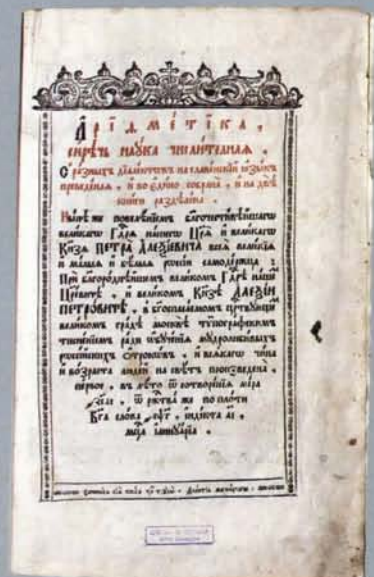 Арїѳметїка ,
сирѣчь наука числителная .
С разныхъ дїалектовъ на славенскїй языкъ
преведеная , и во едино собрана , и на двѣ
книги раздѣлена .
Нынѣ же повелѣнїемъ благочестивѣйшагѡ
великагѡ Гдⷭ҇ря нашегѡ Цр҃я и великагѡ
Кн҃зя ПЕТРА Алеѯїевича всея великїя
и малыя и бѣлыя рѡссїи самодержца :
При благороднѣйшемъ великомъ Гдⷭ҇рѣ нашемъ
Цр҃евичѣ , и великомъ Кн҃зѣ Алеѯїи
ПЕТРОВИЧѢ , в богоспасаемомъ црⷭ҇твующемъ
великомъ градѣ москвѣ тѷпографскимъ
тисненїемъ ради ѡбученїя мудролюбивыхъ
рѡссїйскихъ ѻтрокѡвъ , и всякагѡ чина
и возраста людей на свѣтъ произведена .
первое , въ лѣто ѿ сотворенїя мїра
҂зс҃аї , ѿ рⷤ҇тва же по плоти
Бг҃а слова ҂аѱ҃г , їндїкта аї ,
мцⷭ҇а їаннуарїа .
Сочинися сїя книга чрезъ труды Леонтїя Магницкагѡ .